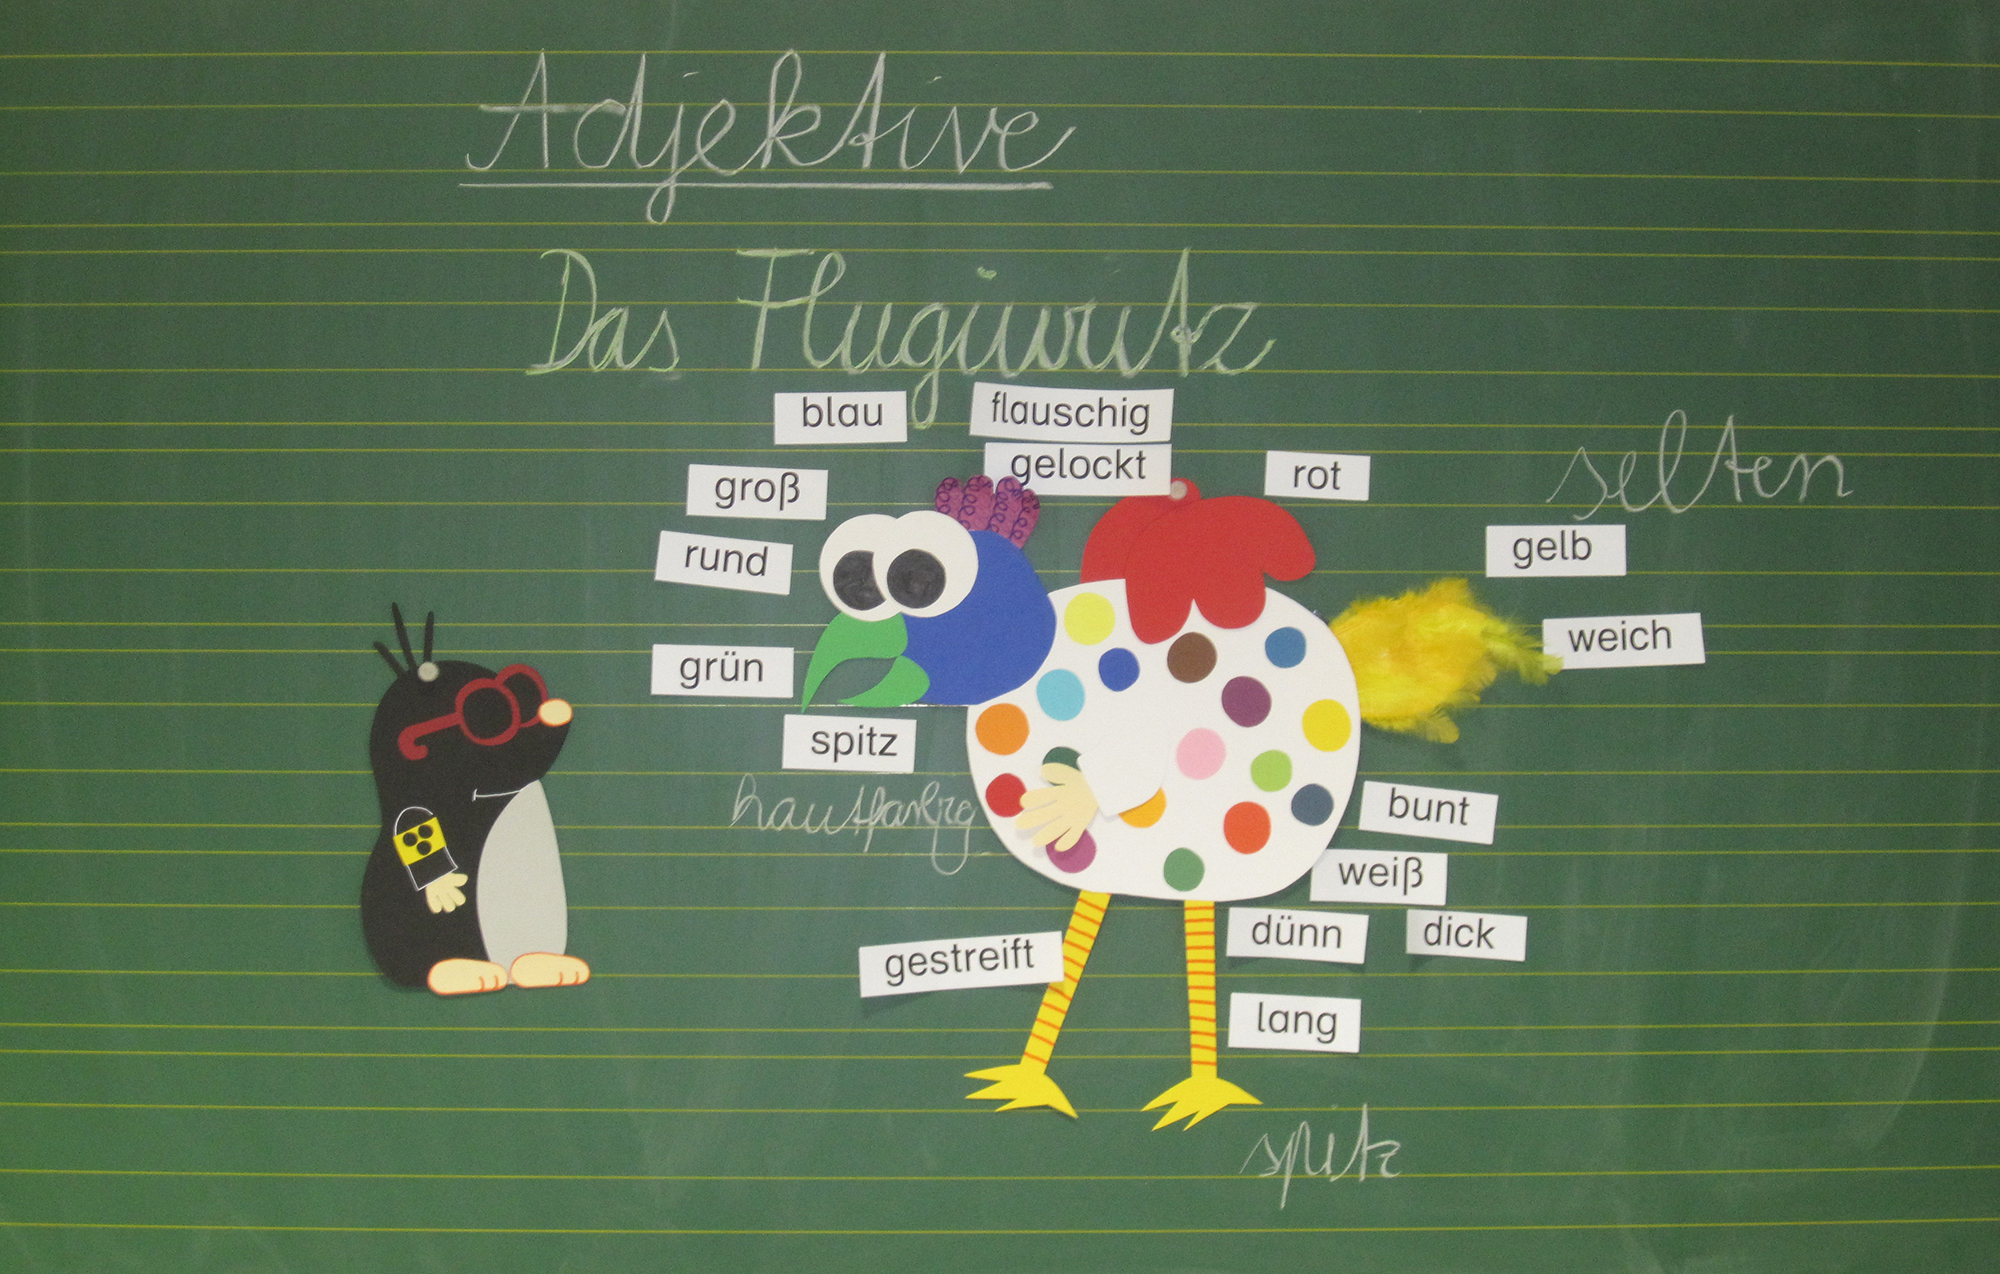 Adjektive
Das Flugiwutz
blau
flauschig
gelockt
groß
rot
selten
rund
gelb
grün
weich
spitz
hautfarbig
bunt
weiß
dünn
dick
gestreift
lang
spitz